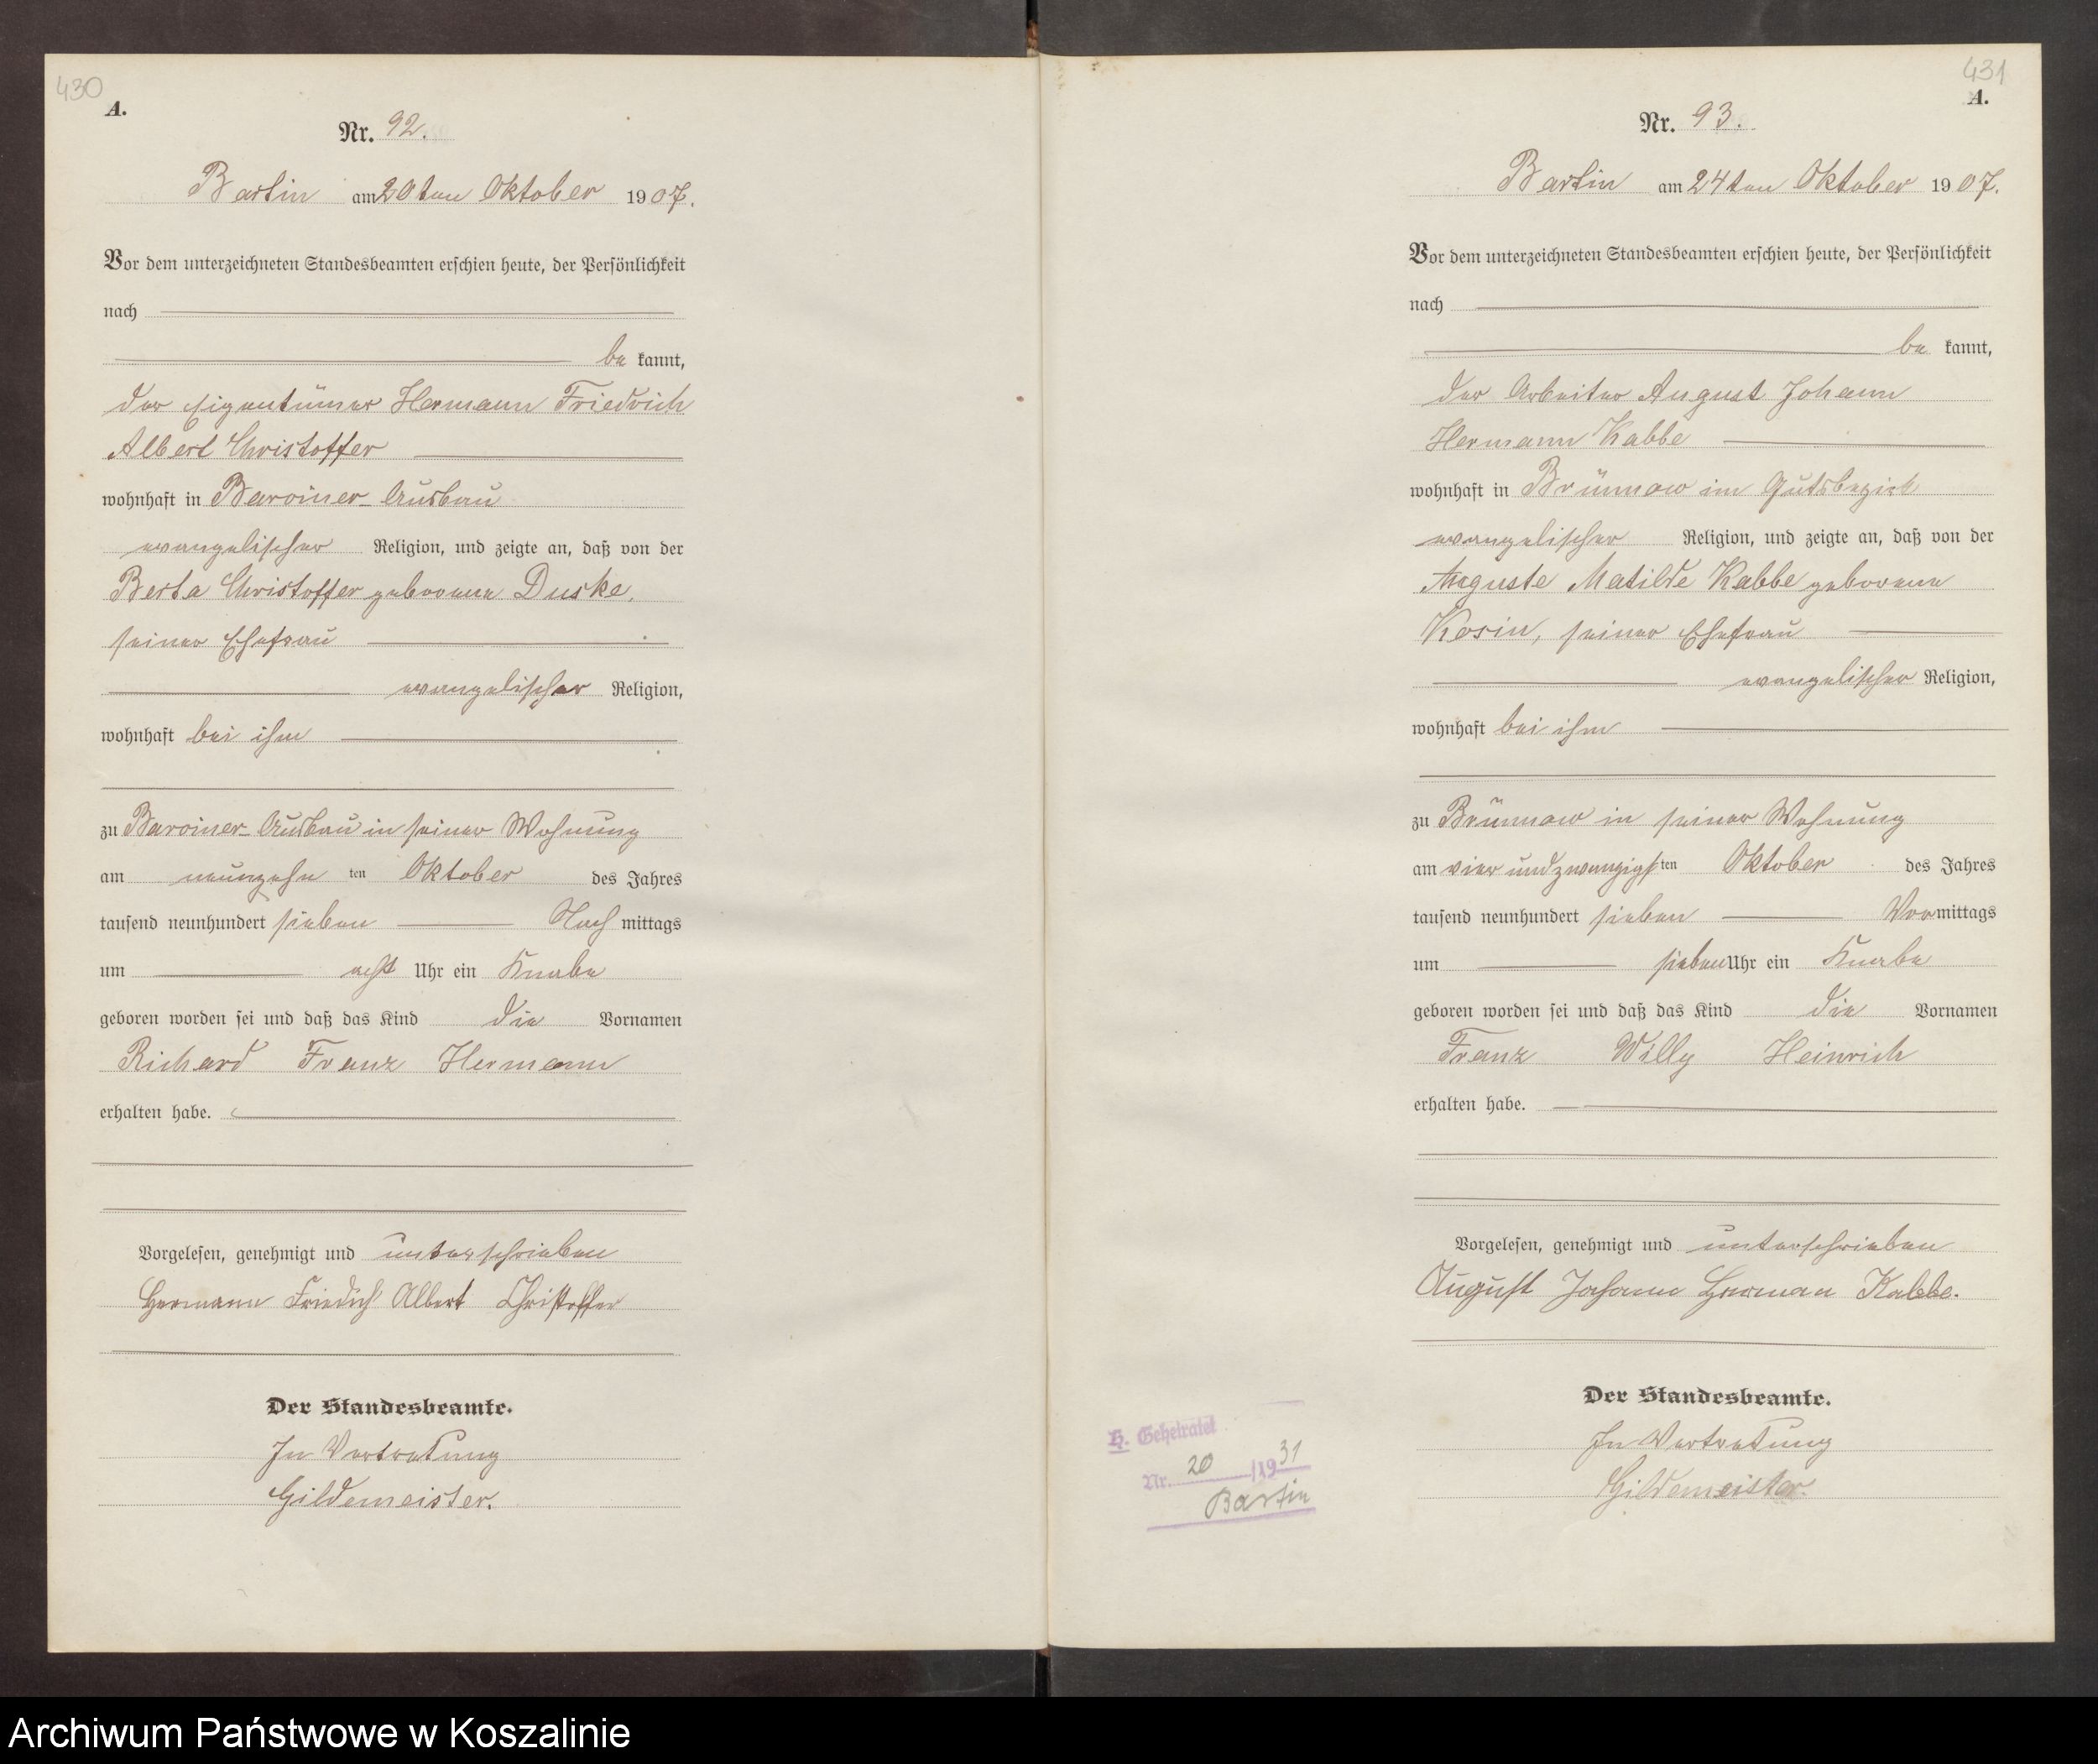 430
A.
Nr. 92.
Bartin am 20ten Oktober 1907.
Vor dem unterzeichneten Standesbeamten erschien heute, der Persönlichkeit
nach
be kannt,
der Eigentümer Hermann Friedrich
Albert Christoffer
wohnhaft in Barviner-Ausbau
evangelischer Religion, und zeigte an, daß von der
Berta Christoffer geborene Duske,
seiner Ehefrau
evangelischer Religion,
wohnhaft bei ihm
zu Barviner-Ausbau in seiner Wohnung
am neunzehn ten Oktober des Jahres
tausend neunhundert sieben Nach mittags
um acht Uhr ein Knabe
geboren worden sei und daß das Kind die Vornamen
Richard Franz Hermann
erhalten habe.
Vorgelesen, genehmigt und unterschrieben
Hermann Friedrich Albert Christoffer
Der Standesbeamte.
In Vertretung
Gildemeister.
431
A.
Nr. 93.
Bartin am 24ten Oktober 1907.
Vor dem unterzeichneten Standesbeamten erschien heute, der Persönlichkeit
nach
be kannt,
der Arbeiter August Johann
Hermann Kabbe
wohnhaft in Brünnow im Gutsbezirk
evangelischer Religion, und zeigte an, daß von der
Auguste Matilde Kabbe geborene
Kosin, seiner Ehefrau
evangelischer Religion,
wohnhaft bei ihm
zu Brünnow in seiner Wohnung
am vier und zwanzigsten Oktober des Jahres
tausend neunhundert sieben Vormittags
um sieben Uhr ein Knabe
geboren worden sei und daß das Kind die Vornamen
Franz Willy Heinrich
erhalten habe.
Vorgelesen, genehmigt und unterschrieben
August Johann Herman Kabbe.
Der Standesbeamte.
In Vertretung
Gildemeister.
H. Geheiratet
Nr. 20 /1931
Bartin
Archiwum Państwowe w Koszalinie